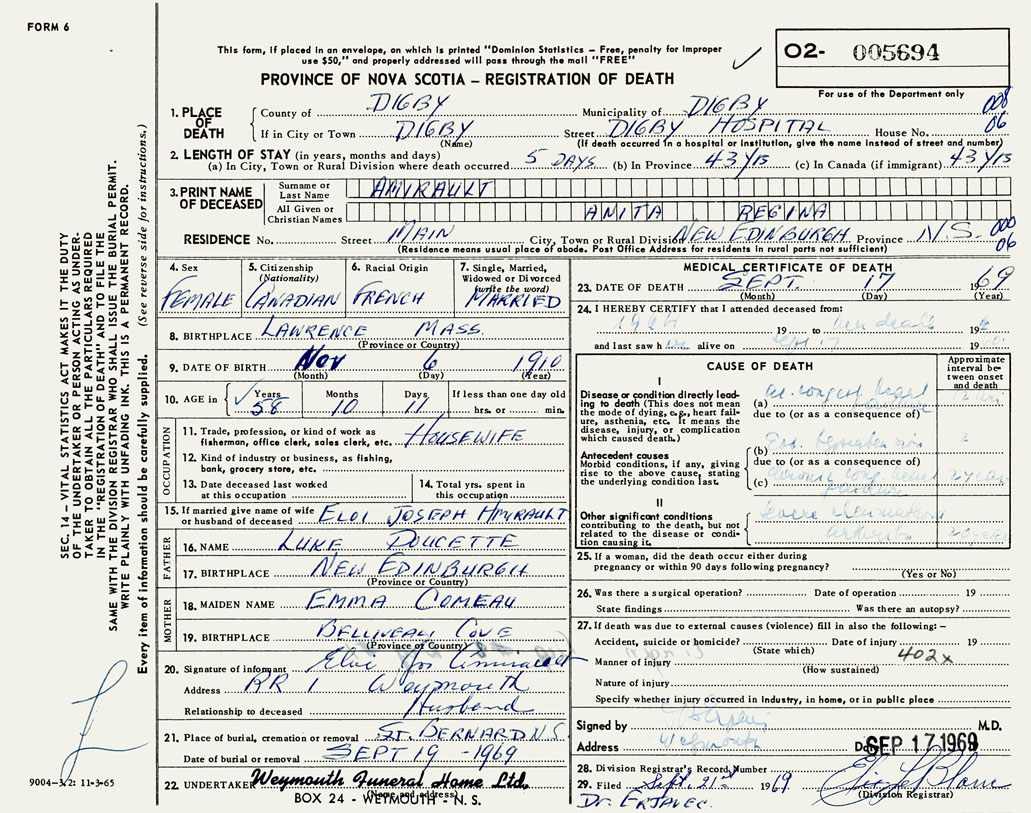 FORM 6
This form, if placed in an envelope, on which is printed "Dominion Statistics – Free, penalty for improper
use $50," and properly addressed will pass through the mail "FREE"
PROVINCE OF NOVA SCOTIA – REGISTRATION OF DEATH
02- 005694
For use of the Department only
1. PLACE OF DEATH
County of DIGBY Municipality of DIGBY 008
If in City or Town DIGBY Street DIGBY HOSPITAL House No. 06
(Name) (If death occurred in a hospital or institution, give the name instead of street and number)
2. LENGTH OF STAY (in years, months and days)
(a) In City, Town or Rural Division where death occurred 5 DAYS (b) In Province 43 yrs (c) In Canada (if immigrant) 43 yrs
3. PRINT NAME OF DECEASED
Surname or Last Name AMIRAULT
All Given or Christian Names ANITA REGINA
RESIDENCE No. Street MAIN City, Town or Rural Division NEW EDINBURGH Province N.S. 000 06
(Residence means usual place of abode. Post Office Address for residents in rural parts not sufficient)
4. Sex FEMALE
5. Citizenship (Nationality) CANADIAN
6. Racial Origin FRENCH
7. Single, Married, Widowed or Divorced (write the word) MARRIED
8. BIRTHPLACE LAWRENCE MASS.
(Province or Country)
9. DATE OF BIRTH Nov 6 1910
(Month) (Day) (Year)
10. AGE in Years 58 Months 10 Days 11 If less than one day old hrs. or min.
OCCUPATION
11. Trade, profession, or kind of work as
fisherman, office clerk, sales clerk, etc. HOUSEWIFE
12. Kind of industry or business, as fishing,
bank, grocery store, etc.
13. Date deceased last worked
at this occupation
14. Total yrs. spent in
this occupation
15. If married give name of wife
or husband of deceased ELOI JOSEPH AMIRAULT
FATHER
16. NAME LUKE DOUCETTE
17. BIRTHPLACE NEW EDINBURGH
(Province or Country)
MOTHER
18. MAIDEN NAME EMMA COMEAU
19. BIRTHPLACE BELLIVEAU COVE
(Province or Country)
20. Signature of informant Eloi Jos Amirault
Address RR 1 Weymouth
Relationship to deceased Husband
21. Place of burial, cremation or removal ST. BERNARD N.S.
Date of burial or removal SEPT 19 - 1969
22. UNDERTAKER Weymouth Funeral Home Ltd.
(Name and address)
BOX 24 - WEYMOUTH - N. S.
MEDICAL CERTIFICATE OF DEATH
23. DATE OF DEATH SEPT. 17 1969
(Month) (Day) (Year)
24. I HEREBY CERTIFY that I attended deceased from:
19 to death 19
and last saw h alive on Sept 17 19
CAUSE OF DEATH
Approximate interval between onset and death
I
Disease or condition directly leading to death (This does not mean
the mode of dying, e.g., heart failure, asthenia, etc. It means the
disease, injury, or complication
which caused death.)
(a)
due to (or as a consequence of)
Antecedent causes
Morbid conditions, if any, giving
rise to the above cause, stating
the underlying condition last.
(b)
due to (or as a consequence of)
(c)
II
Other significant conditions
contributing to the death, but not
related to the disease or condition causing it.
25. If a woman, did the death occur either during
pregnancy or within 90 days following pregnancy?
(Yes or No)
26. Was there a surgical operation? Date of operation 19
State findings Was there an autopsy?
27. If death was due to external causes (violence) fill in also the following:–
Accident, suicide or homicide? Date of injury 19
(State which)
Manner of injury 402x
(How sustained)
Nature of injury
Specify whether injury occurred in Industry, in home, or in public place
Signed by M.D.
Address Weymouth Date SEP 17 1969
28. Division Registrar's Record Number
29. Filed Sept. 21st 1969
(Division Registrar)
Dr. ERJAVEC.
SEC. 14 – VITAL STATISTICS ACT MAKES IT THE DUTY
OF THE UNDERTAKER OR PERSON ACTING AS UNDERTAKER TO OBTAIN ALL THE PARTICULARS REQUIRED
IN THE "REGISTRATION OF DEATH" AND TO FILE THE
SAME WITH THE DIVISION REGISTRAR WHO SHALL ISSUE THE BURIAL PERMIT.
WRITE PLAINLY WITH UNFADING INK. THIS IS A PERMANENT RECORD.
Every item of information should be carefully supplied. (See reverse side for instructions.)
9004-3/2: 11-3-65